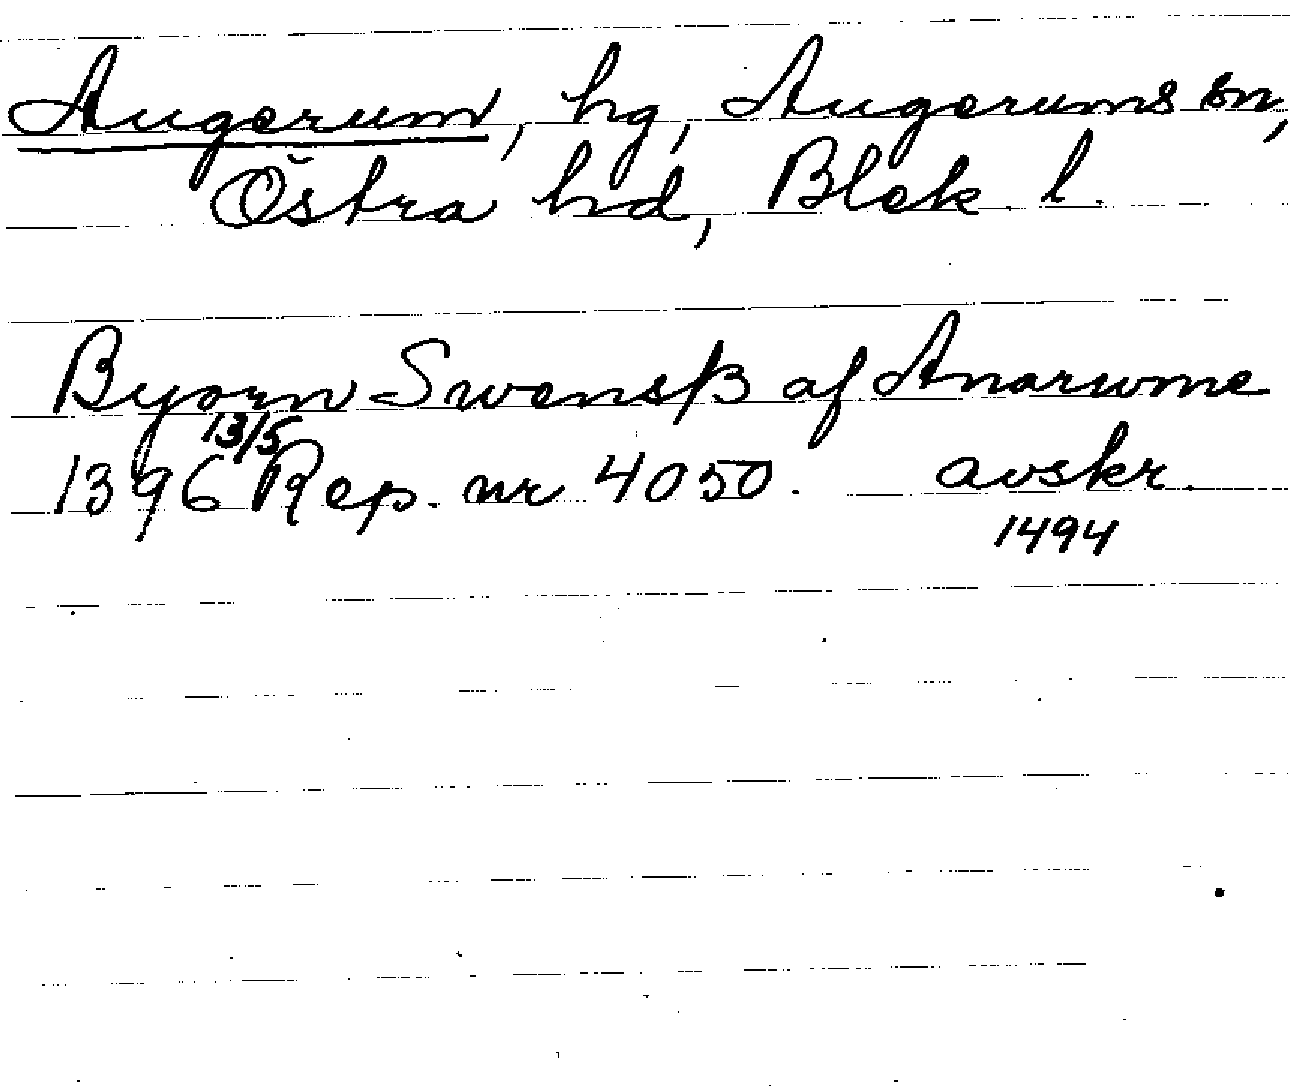 Augerum, hg, Augerums sn,
Östra hd, Blek. l.
Byorn Swensß af Anarwme
1396 13/5 Rep. nr 4050. avskr.
1494